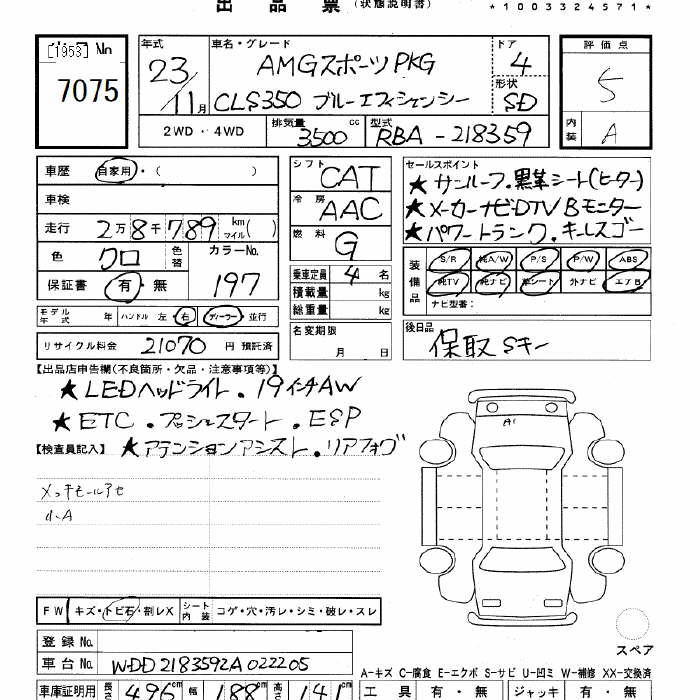 出品票 (状態説明書)
*1003324571*
[1953] No 7075
年式 23/11月
車名・グレード AMGスポーツPKG
CLS350 ブルーエフィシェンシー
ドア 4
形状 SD
評価点 5
内装 A
2WD・4WD
排気量 3500 cc
型式 RBA-218359
車歴 自家用・( )
車検
走行 2万8千789 km マイル( )
色 クロ 色替
カラーNo. 197
保証書 有・無
モデル年式 年 ハンドル 左 右 ディーラー 並行
リサイクル料金 21070 円 預託済
シフト CAT
冷房 AAC
燃料 G
乗車定員 4 名
積載量 kg
総重量 kg
名変期限 月 日
セールスポイント
★サンルーフ.黒革シート(ヒーター)
★メーカーナビDTV Bモニター
★パワートランク.キーレスゴー
装備品 S/R 純A/W P/S P/W ABS
純TV 純ナビ 革シート 外ナビ エアB
ナビ型番:
後日品
保取 Sキー
【出品店申告欄(不良箇所・欠品・注意事項等)】
★LEDヘッドライト.19インチAW
★ETC.プッシュスタート.ESP
【検査員記入】 ★アテンションアシスト.リアフォグ
メッキモールアセ
小A
A1
FW キズ・トビ石・割レX シート内装 コゲ・穴・汚レ・シミ・破レ・スレ
登録No.
車台No. WDD2183592A022205
スペア
A-キズ C-腐食 E-エクボ S-サビ U-凹ミ W-補修 XX-交換済
車庫証明用 長さ 496 cm 幅 188 cm 高さ 141 cm
工具 有・無 ジャッキ 有・無